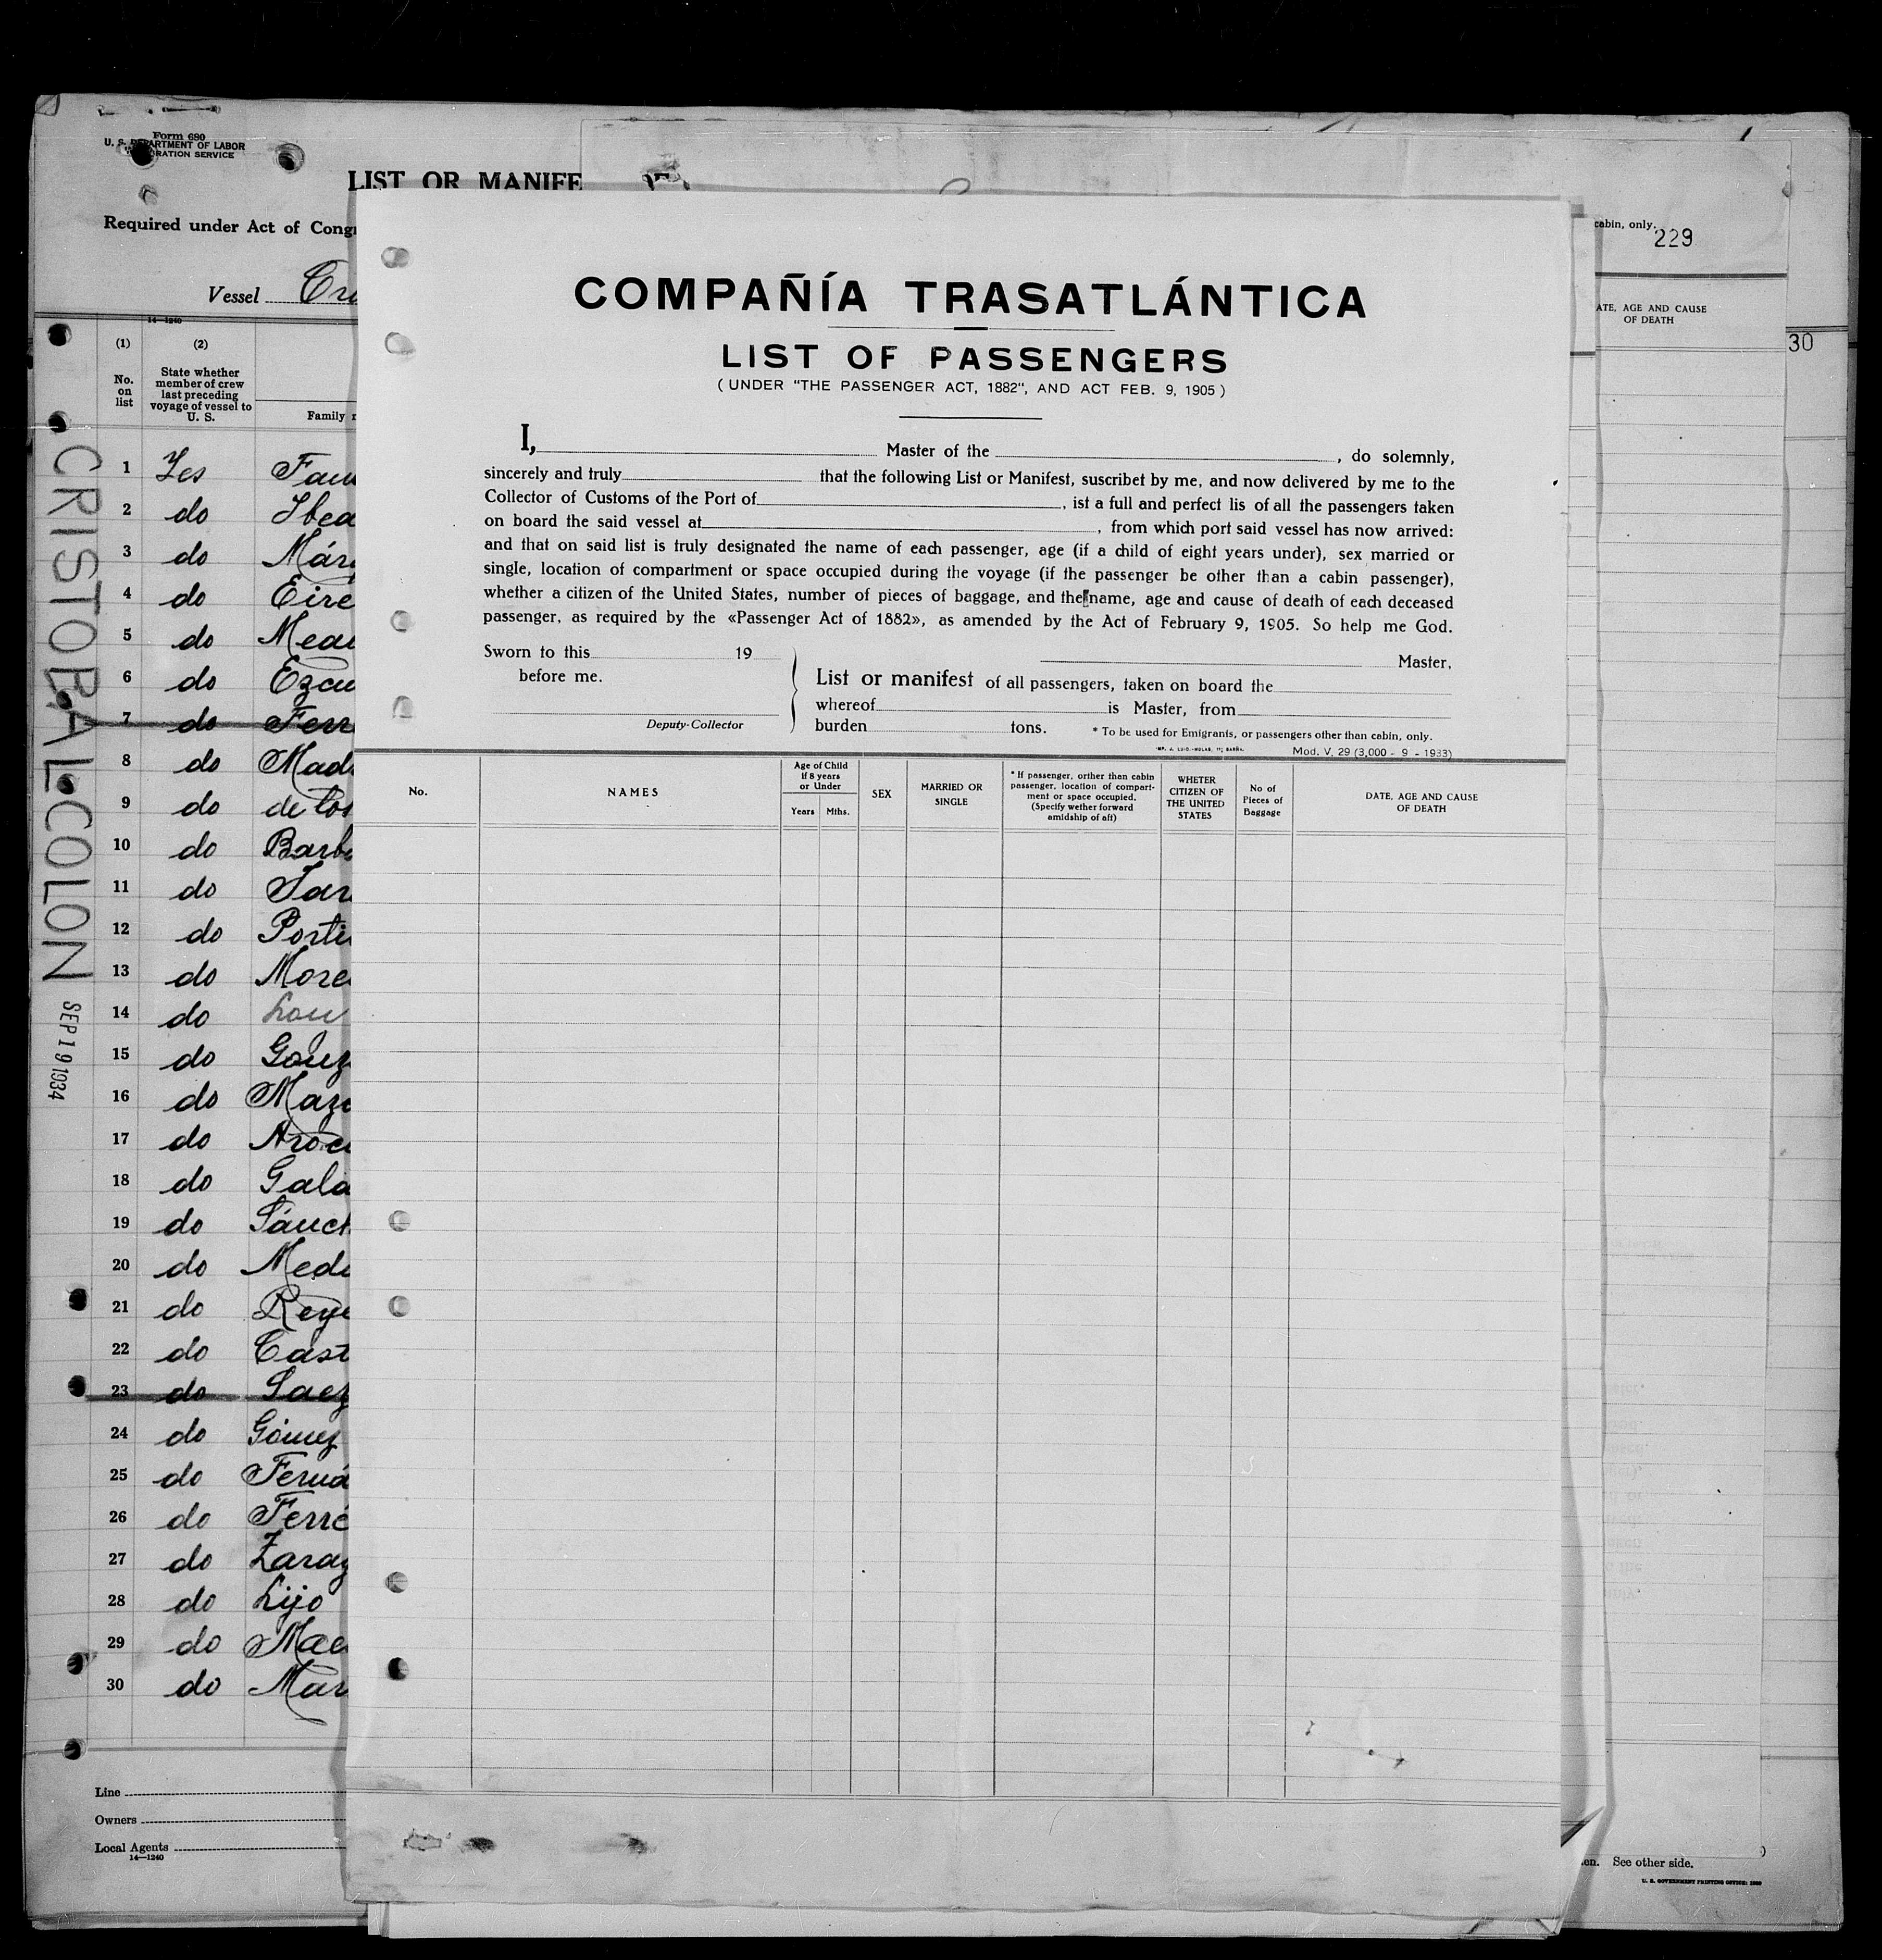 Form 680
U. S. DEPARTMENT OF LABOR
LIST OR MANIFE
Required under Act of Cong
Vessel
14—1240
(1)
No.
on
list
(2)
State whether
member of crew
last preceding
voyage of vessel to
U. S.
Family
CRISTOBAL COLON
SEP 19 1934
1 Yes Fau
2 do Ibea
3 do Már
4 do Eire
5 do
6 do Ezcu
7 do Ferr
8 do Mad
9 do de los
10 do Barb
11 do
12 do Porti
13 do More
14 do
15 do Gonz
16 do
17 do Aroc
18 do Gala
19 do Sánch
20 do Med
21 do Reye
22 do Cast
23 do Saez
24 do Gómez
25 do Ferná
26 do Ferré
27 do Zarag
28 do Lijo
29 do
30 do Mar
Line
Owners
Local Agents
14—1240
COMPAÑÍA TRASATLÁNTICA
LIST OF PASSENGERS
(UNDER "THE PASSENGER ACT, 1882", AND ACT FEB. 9, 1905)
I, Master of the , do solemnly,
sincerely and truly that the following List or Manifest, suscribet by me, and now delivered by me to the
Collector of Customs of the Port of , ist a full and perfect lis of all the passengers taken
on board the said vessel at , from which port said vessel has now arrived:
and that on said list is truly designated the name of each passenger, age (if a child of eight years under), sex married or
single, location of compartment or space occupied during the voyage (if the passenger be other than a cabin passenger),
whether a citizen of the United States, number of pieces of baggage, and the name, age and cause of death of each deceased
passenger, as required by the «Passenger Act of 1882», as amended by the Act of February 9, 1905. So help me God.
Sworn to this 19
before me.
Deputy-Collector
Master,
List or manifest of all passengers, taken on board the
whereof is Master, from
burden tons. * To be used for Emigrants, or passengers other than cabin, only.
Mod. V, 29 (3,000 - 9 - 1933)
No.
NAMES
Age of Child
if 8 years
or Under
Years Mths.
SEX
MARRIED OR
SINGLE
* If passenger, orther than cabin
passenger, location of compart-
ment or space occupied.
(Specify wether forward
amidship of aft)
WHETER
CITIZEN OF
THE UNITED
STATES
No of
Pieces of
Baggage
DATE, AGE AND CAUSE
OF DEATH
cabin, only.
229
ATE, AGE AND CAUSE
OF DEATH
30
en. See other side.